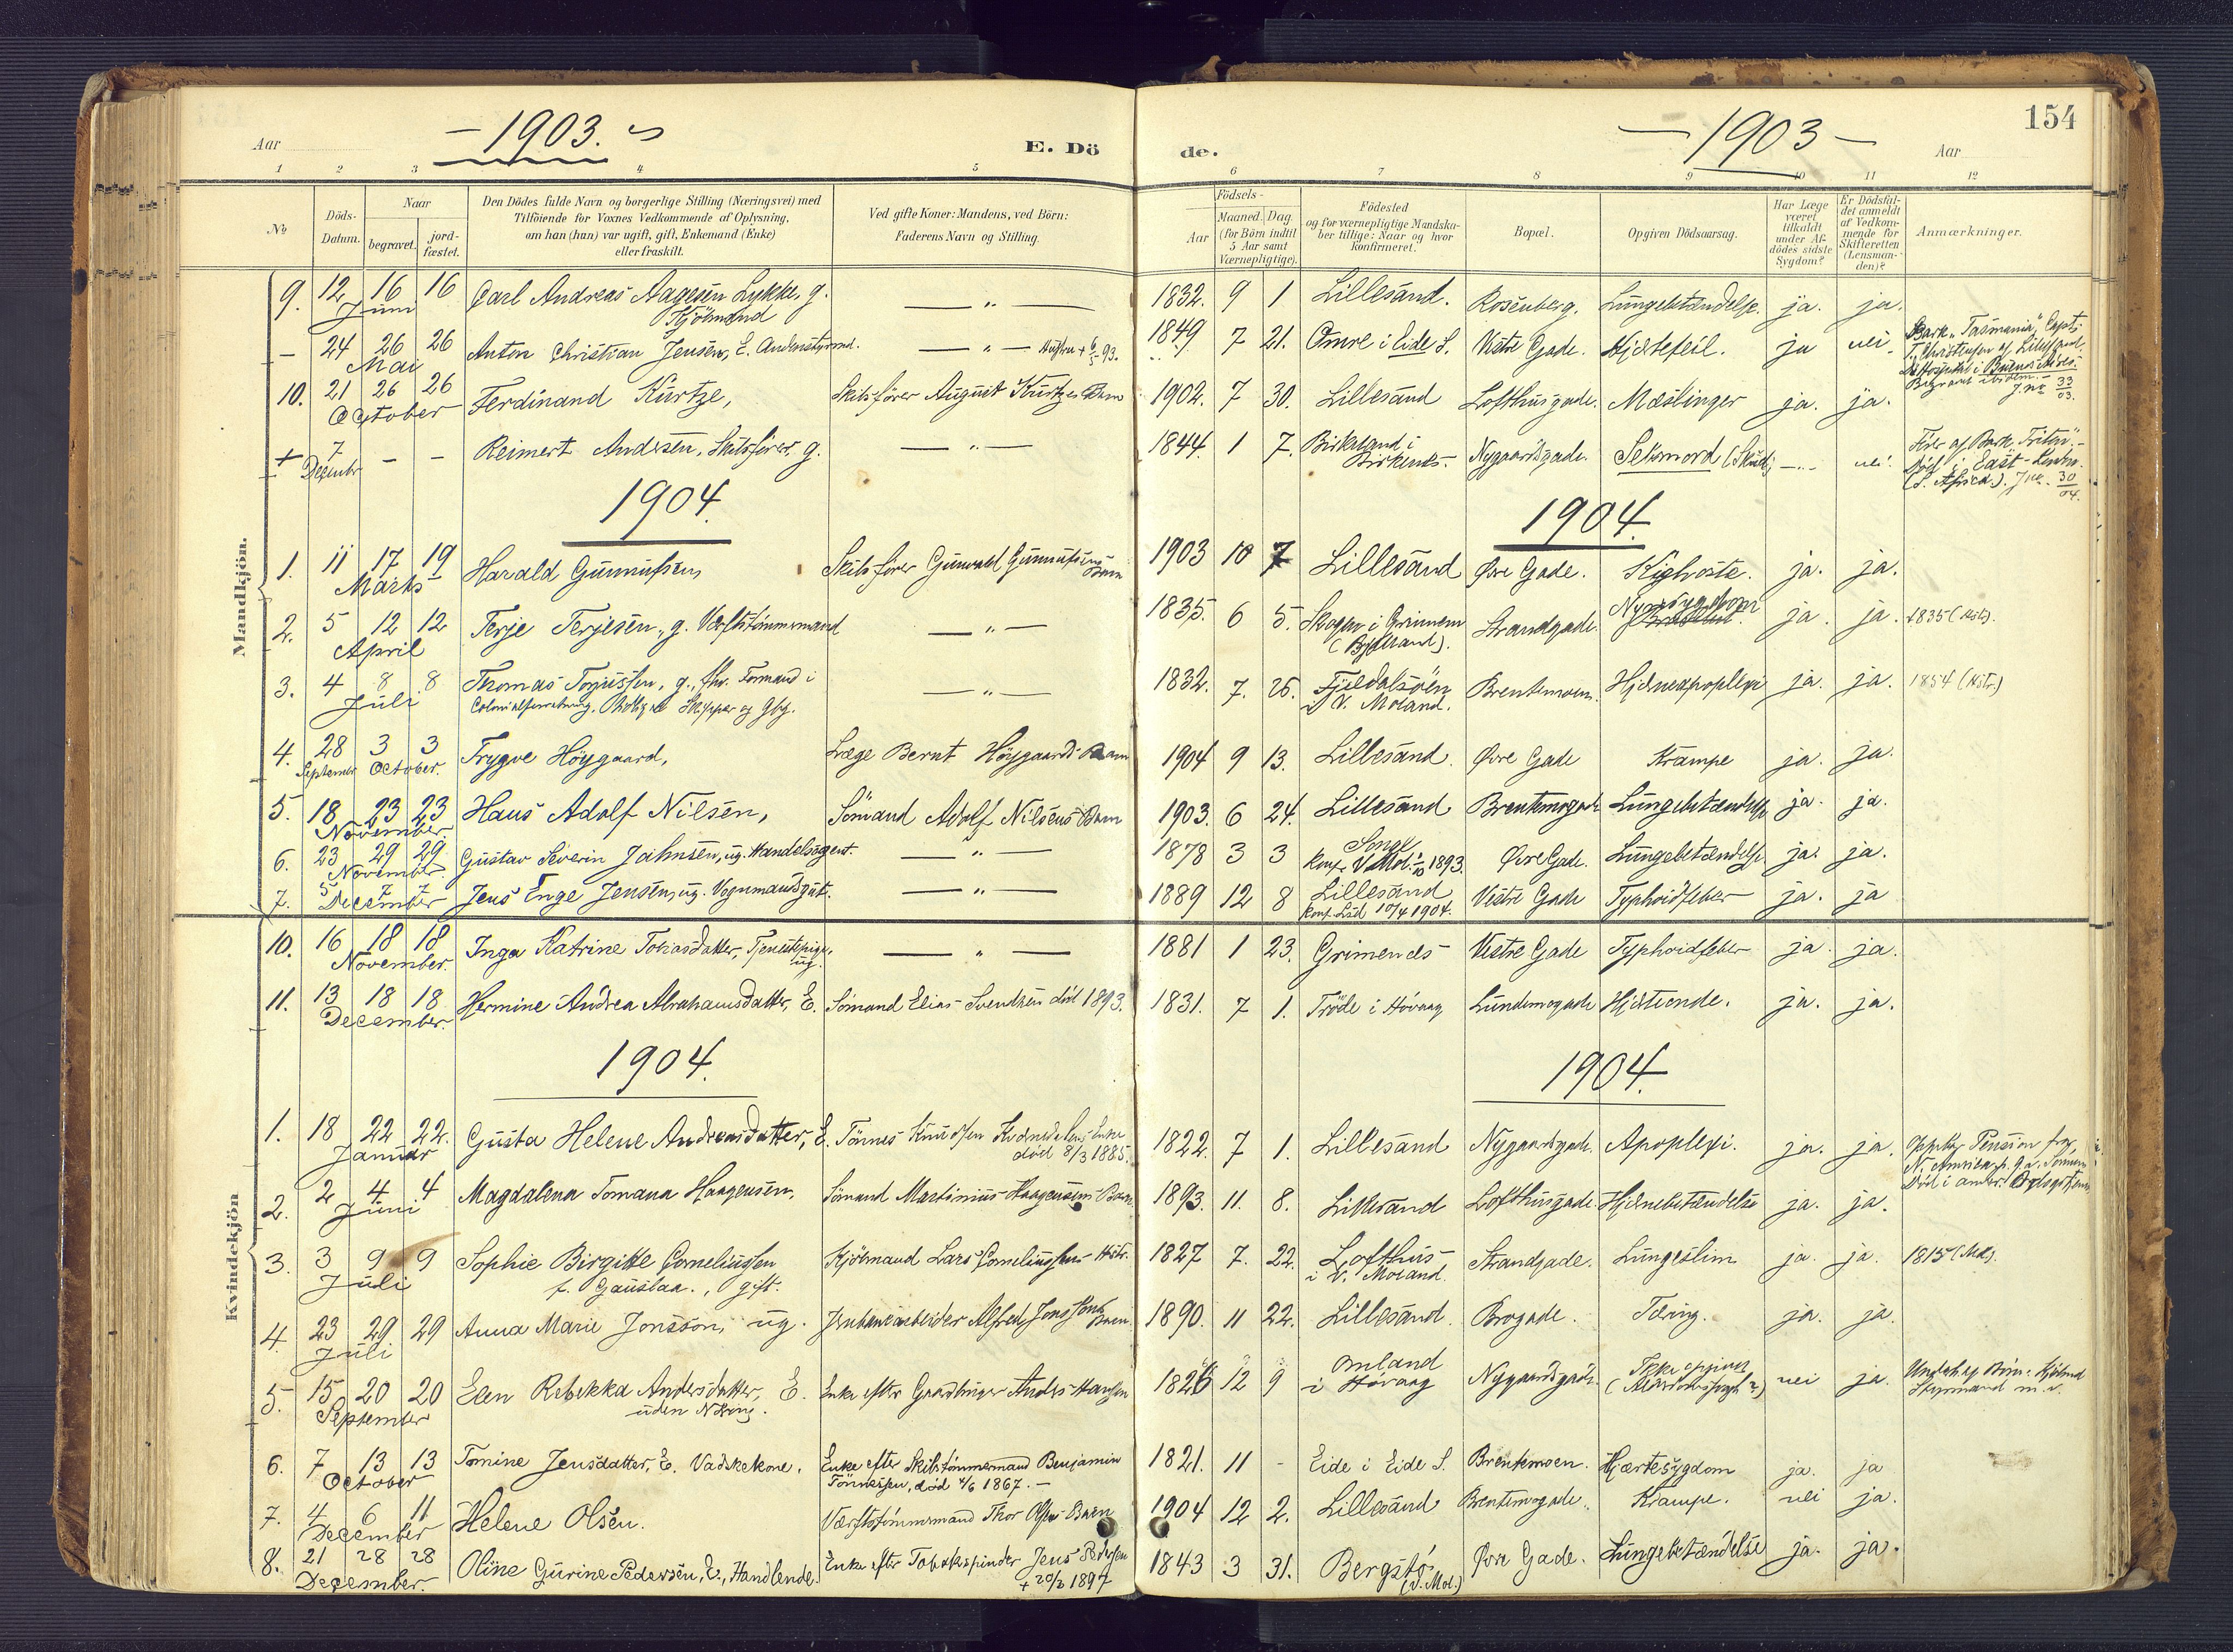 Aar
— 1903. ~
E. Dö
de.
— 1903 —
Aar
154
1 2 3 4 5 6 7 8 9 10 11 12
No
Döds-
Datum.
Naar
begravet.
jord-
fæstet.
Den Dödes fulde Navn og borgerlige Stilling (Næringsvei) med
Tilföiende for Voxnes Vedkommende af Oplysning,
om han (hun) var ugift, gift, Enkemand (Enke)
eller fraskilt.
Ved gifte Koner: Mandens, ved Börn:
Faderens Navn og Stilling.
Födsels-
Aar
Maaned. Dag.
(for Börn indtil
5 Aar samt
Værnepligtige).
Födested
og for værnepligtige Mandska-
ber tillige: Naar og hvor
konfirmeret.
Bopæl.
Opgiven Dödsaarsag.
Har Læge
været
tilkaldt
under Af-
dödes sidste
Sygdom?
Er Dödsfal-
det anmeldt
af Vedkom-
mende for
Skifteretten
(Lensman-
den)?
Anmærkninger.
Mandkjön.
9. 12 16 16 Juni Carl Andreas Aagesen Lykke, g. Kjöbmand — „ — 1832. 9 1 Lillesand. Rosenberg. Lungebetændelse. ja. ja.
— 24 26 26 Mai Anton Christian Jensen, E. — „ — Hustru + 93. 1849 7 21. Omre i Eide S. Vestre Gade. Hjertefeil. ja nei. Bark „Tasmania", Capt.
T. Christensen af Lillesand.
Hospital i Buenos Aires.
Begravet ibidem. J.no 33/03.
10. 21 26 26 October Ferdinand Kurtze, Skibsförer August Kurtzes Barn 1902. 7 30. Lillesand Lofthusgade. Mæslinger ja. ja.
+ 7 Decembr — — Reimert Andersen, Skibsförer. g. — „ — 1844. 1 7. Birkeland i
Birkenes. Nygaardsgade. Selvmord (Skud) — „ — nei. Förer af Bark „Triton".
Död i East-London
(S. Africa). J.no. 30/04.
1904.
1904.
1. 11 17 19 Marts Harald Gunnufsen, Skibsförer Gunvald Gunnufsens Barn 1903 10 7 Lillesand Øvre Gade. Kighoste. ja. ja.
2. 5 12 12 April Terje Terjesen, g. Værftstömmermand — „ — 1835. 6 5. Skogen i Grimenes Strandgade. Nyresygdom ja. ja. 1835 (Att).
3. 4 8 8 Juli Thomas Torjussen, g., fhv. Formand i
Skipper og Gbg. — „ — 1832. 7. 25. Fjeldalsöen
i V. Moland. Brentemoen. Hjerneapoplexi ja. ja. 1854 (Att.)
4. 28 September 3 3 October. Trygve Höygaard, Læge Bernt Höygaards Barn 1904 9 13. Lillesand. Øvre Gade Krampe ja. ja.
5. 18 23 23 November. Hans Adolf Nilsen, Sömand Adolf Nilsens Barn 1903. 6 24. Lillesand Brentemogade Lungebetændelse ja. ja.
6. 23 29 29 November. Gustav Severin Jahnsen, ug. Handelsagent. — „ — 1878 3 3 Songe
Konf. V. Mol. 1893. Øvre Gade. Lungebetændelse ja. ja.
7. 5 7 7 December Jens Enge Jensen, ug. Vognmandsgut. — „ — 1889 12 8 Lillesand
Konf. Lsd 10/4 1904. Vestre Gade Typhoidfeber ja. ja
Kvindekjön
10. 16 18 18 November. Inga Katrine Tobiasdatter, Tjenestepige, ug. — „ — 1881 1 23. Grimenes Vestre Gade Typhoidfeber ja. ja.
11. 13 18 18 December. Hermine Andrea Abrahamsdatter, E. Sömand Elias Svendsen död 1893. 1831. 7 1. Tröde i Hövaag Lundemogade Hjerteonde. ja. ja.
1904.
1904.
1. 18 22 22. Januar Gusta Helene Andreasdatter, E. Tönnes Knudsen Enke
död 8/3 1885. 1822. 7 1. Lillesand Nygaardsgade. Apoplexi. ja. ja. Pension fra
N. Amerika
2. 2 4 4 Juni Magdalena Tomana Haagensen, Sömand Martinius Haagensens Barn 1893. 11. 8. Lillesand Lofthusgade. Hjernebetændelse ja. ja.
3. 3 9 9 Juli Sophie Birgitte Corneliussen
f. Gauslaa., gift. Kjöbmand Lars Corneliussens Hstr. 1827 7. 22. Lofthus
i V. Moland. Strandgade. Lungeslim ja. ja. 1815 (Att).
4. 23 29 29 Juli Anna Marie Jonsson, ug. Jernbanearbeider Alfred Jonssons Barn. 1890. 11 22. Lillesand. Brogade. Tæring. ja. ja.
5. 15 20 20 September Elen Rebekka Andersdatter, E.
uden Næring. Enke efter Gaardbruger Anders Hansen 1826 12 9 Omland
i Hövaag Nygaardsgade. Ikke opgivet
(Alderdomssvagh?) nei ja. Underh. af Börn: Kjöbmd
Styrmand m. v.
6. 7 13 13 October Tomine Jensdatter, E. Vadskekone. Enke efter Skibstömmermand Benjamin
Tönnesen, död 4/6 1867. — 1821. 11 - Eide i Eide S. Brentemoen. Hjærtesygdom ja. ja
7. 4 6 11 December Helene Olsen. Værftstömmermand Thor Olsens Barn 1904 12 2. Lillesand Brentemogade. Krampe. nei ja.
8. 21 28 28 December. Oline Gurine Pedersen, E., Handlende. Enke efter Tobakspinder Jens Pedersen
+ 20/2 1897 1843 3 31. Bergstö
(V. Mol.) Øvre Gade. Lungebetændelse ja. ja.